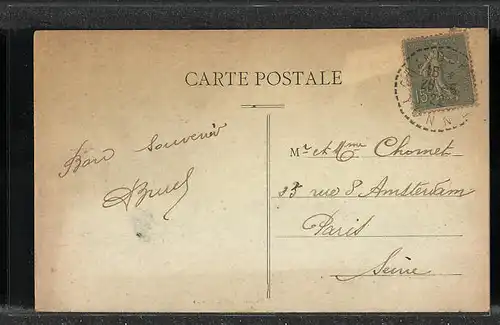 CARTE POSTALE
Bon Souvenir
Mr et Mme Chomet
rue d'Amsterdam
Paris
Seine
15